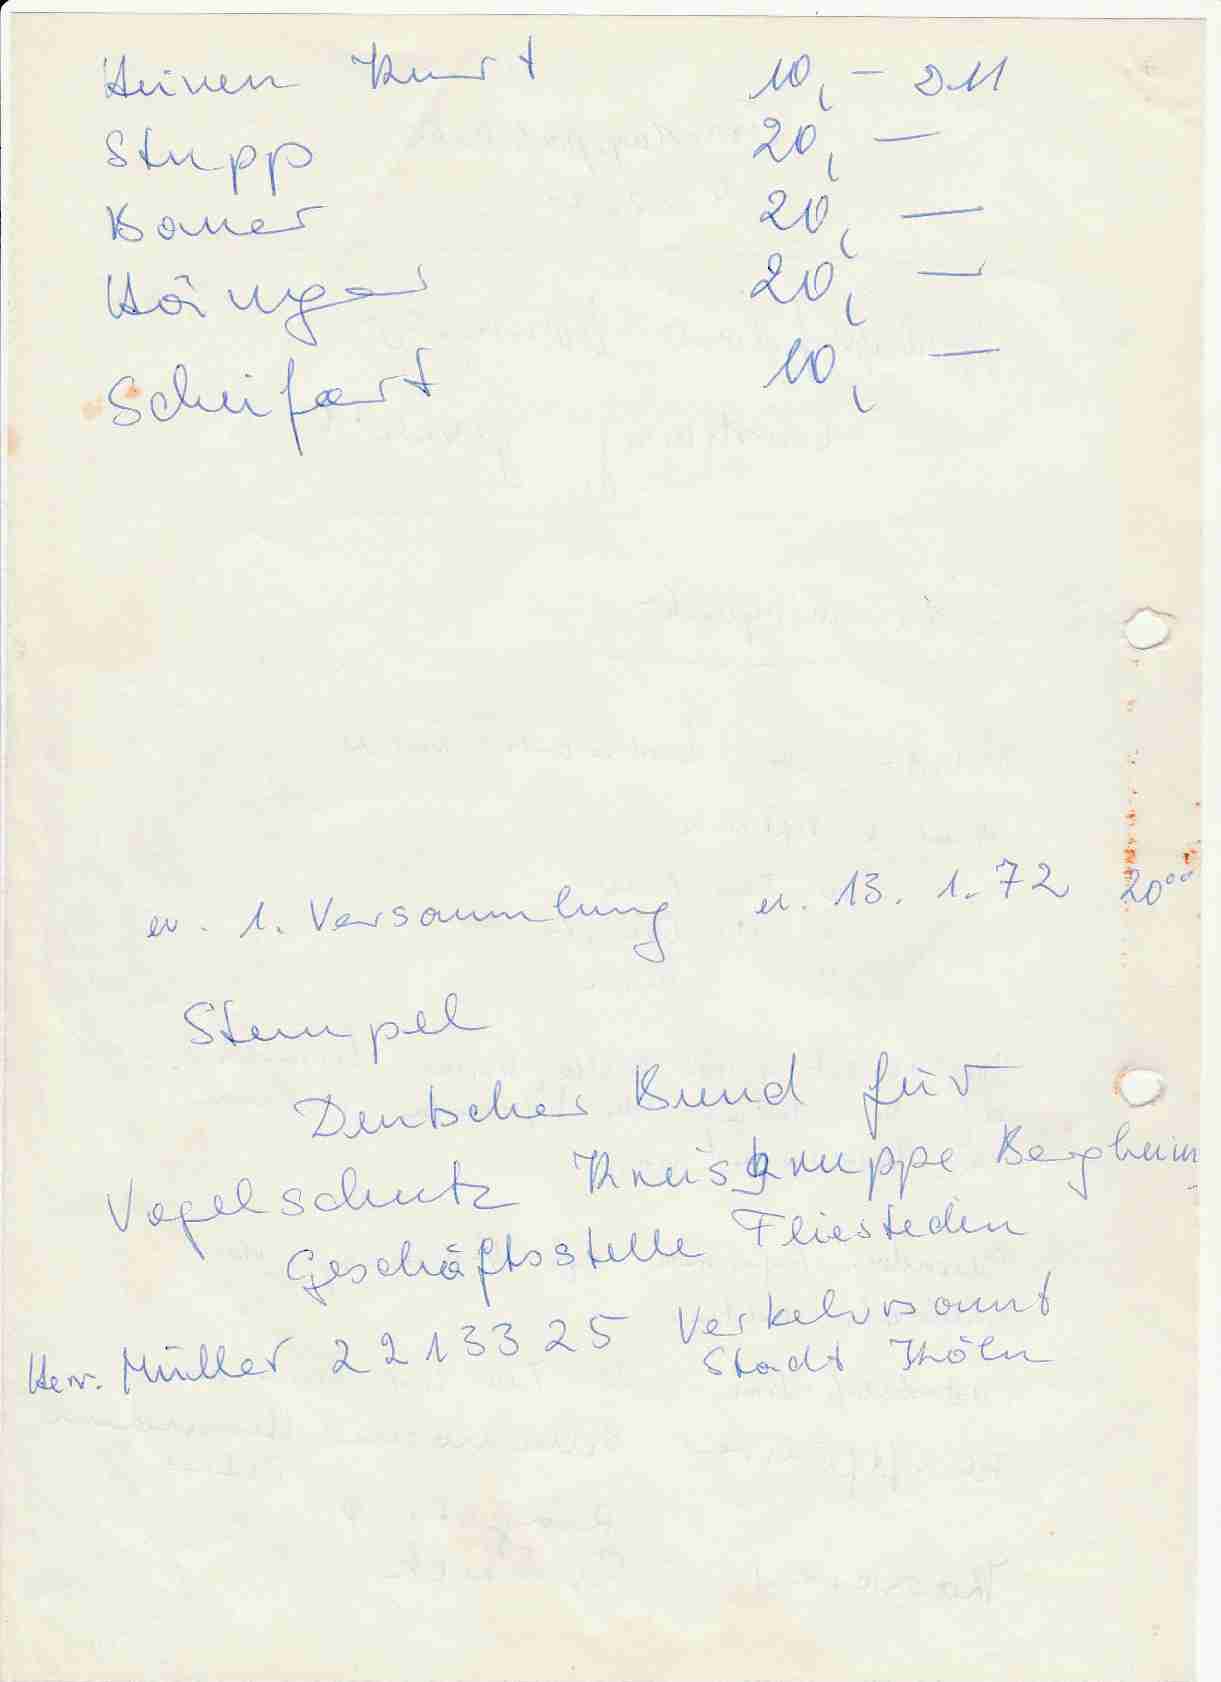 Heinen Kurt 10,- DM
Stupp 20,-
Bauer 20,-
Hänger 20,-
Scheifart 10,-
1. Versammlung 13. 1. 72 20⁰⁰
Stempel
Deutscher Bund für
Vogelschutz Kreisgruppe Bergheim
Geschäftsstelle Fliesteden
Herr. Müller 2213325 Verkehrsamt
Stadt Köln